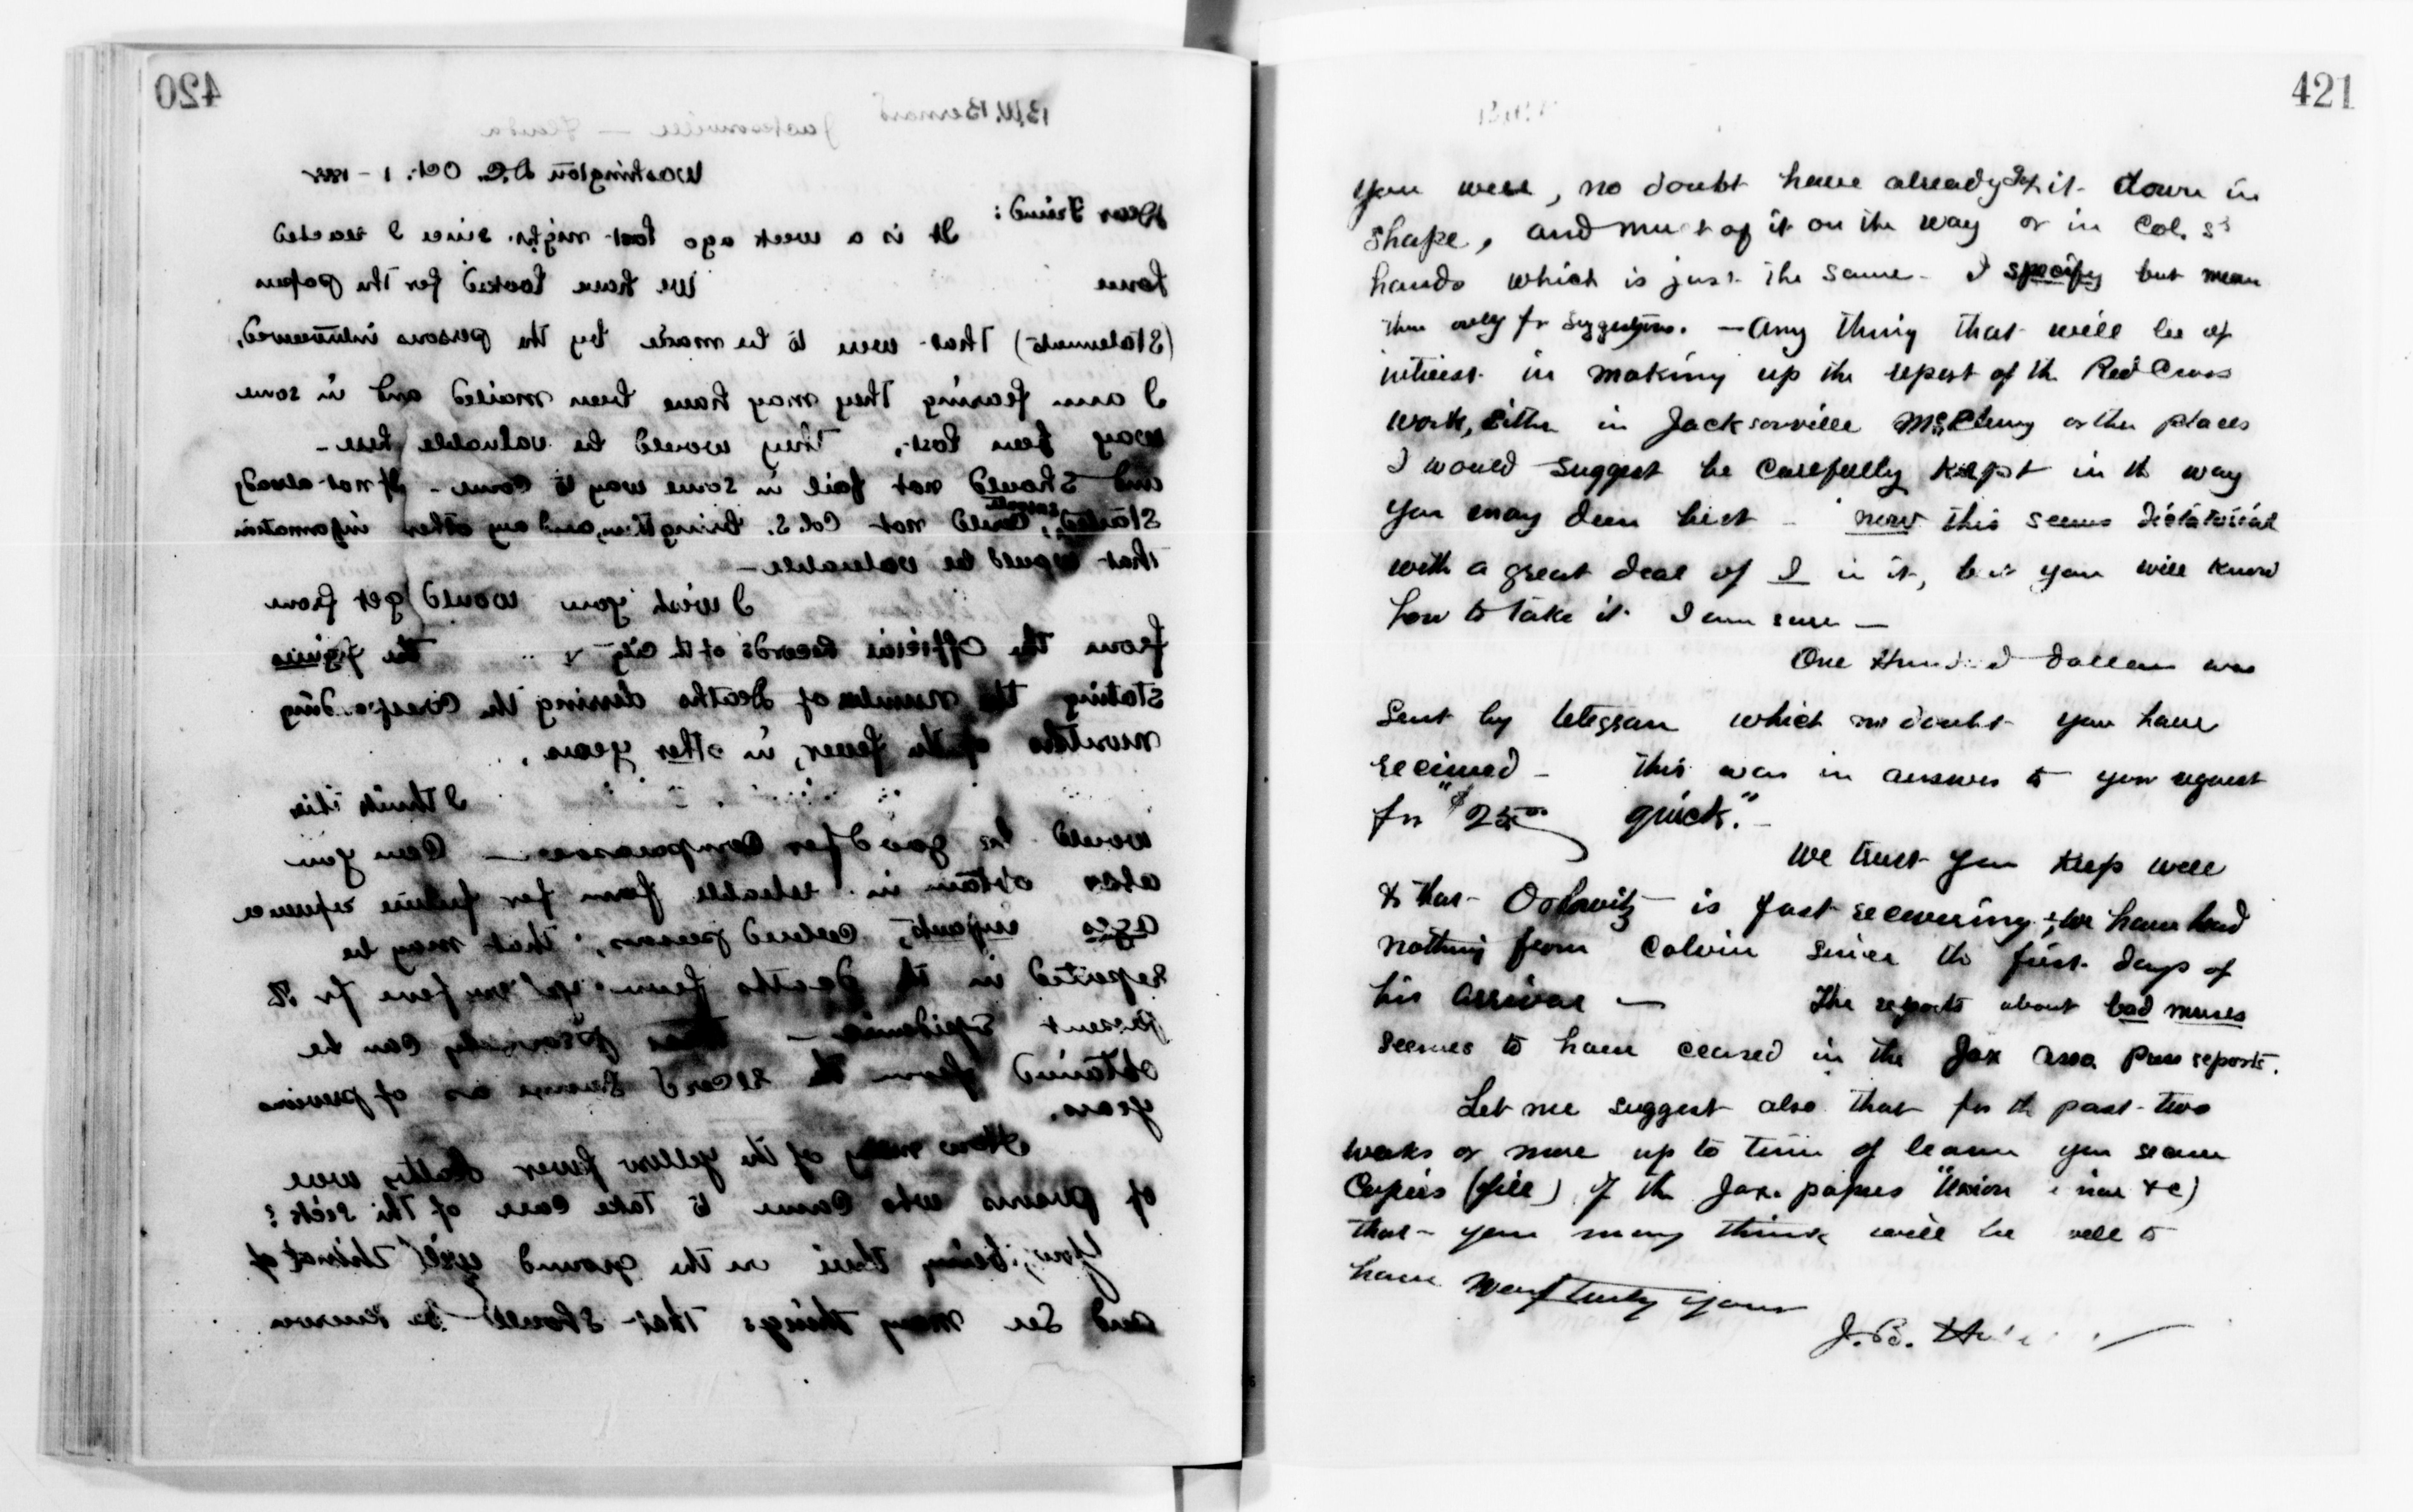 420
B.W. Bernard
Jacksonville — Florida
Washington D.C. Oct. 1 - 1888
Dear Friend:
It is a week ago last night since I reached
home We have looked for the papers
(Statements) that were to be made by the persons interviewed,
I am fearing they may have been mailed and in some
way been lost, They would be valuable here —
and should not fail in some way to come - If not already
started, could not Col. S. bring them, and any other information
that would be valuable —
I wish you would get from
from the official records of the City the figures
stating the number of deaths during the corresponding
months of the fever, in other years,
I think this
would be good for comparison — Can you
also obtain in reliable form for future reference
ages infants, colored persons, that may be
reported in the deaths from yellow fever for the
present epidemic — These possibly can be
obtained from the record as of previous
years.
How many of the yellow fever deaths were
of persons who came to take care of the sick?
You, being there on the ground will think of
and see many things that should be known
421
you will, no doubt have already it down in
shape, and most of it on the way or in Col. S's
hands which is just the same - I specify but mean
them only for suggestions. — Any thing that will be of
interest in making up the report of the Red Cross
work, either in Jacksonville McClenny or other places
I would suggest be carefully kept in the way
you may deem best — now this seems dictatorial
with a great deal of I in it, but you will know
how to take it I am sure —
One Hundred dollars was
sent by telegram which no doubt you have
received — This was in answer to your request
for "$25.00 quick." —
We trust you keep well
& that is fast recovering, We have had
nothing from Colvin since the first days of
his arrival — The reports about bad nurses
seems to have ceased in the Jax Asso. Press reports.
Let me suggest also that for the past two
weeks or more up to time of leaving you secure
Copies (file) of the Jax. papers "Union &c)
that you may think will be well to
have Very truly yours
J.B.